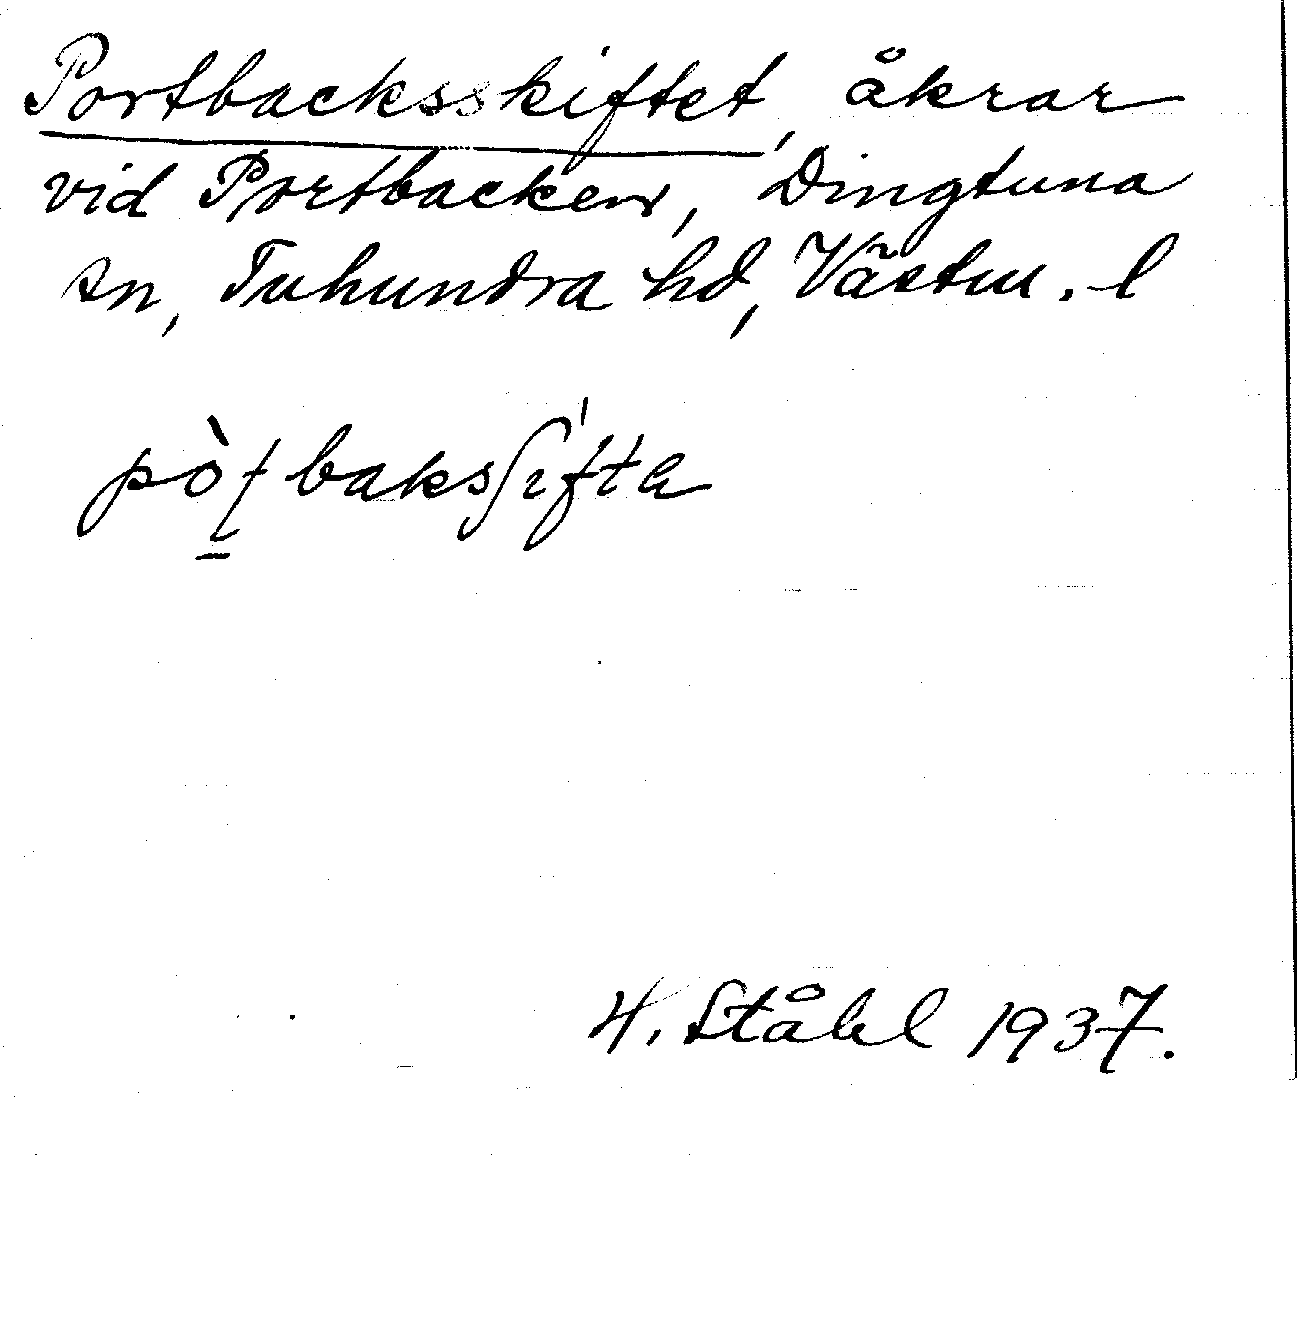 Portbacksskiftet, åkrar
vid Portbacken, Dingtuna
sn, Tuhundra hd, Västm. l
pòʈbaksʃıfta
H. Ståhl 1937.